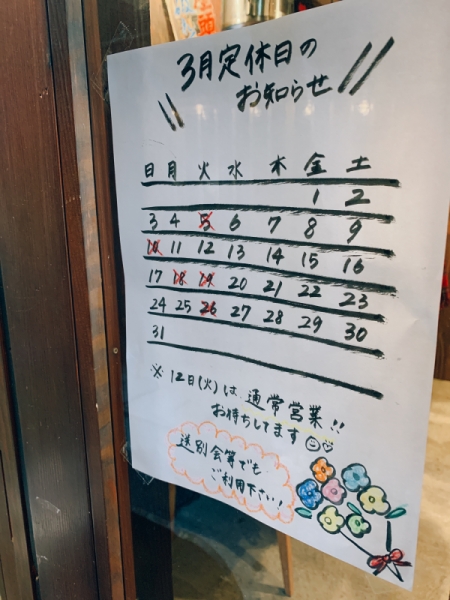 3月定休日の
お知らせ
日 月 火 水 木 金 土
1 2
3 4 5 6 7 8 9
10 11 12 13 14 15 16
17 18 19 20 21 22 23
24 25 26 27 28 29 30
31
※ 12日(火)は 通常営業!!
お待ちしてます
送別会等でも
ご利用下さい!